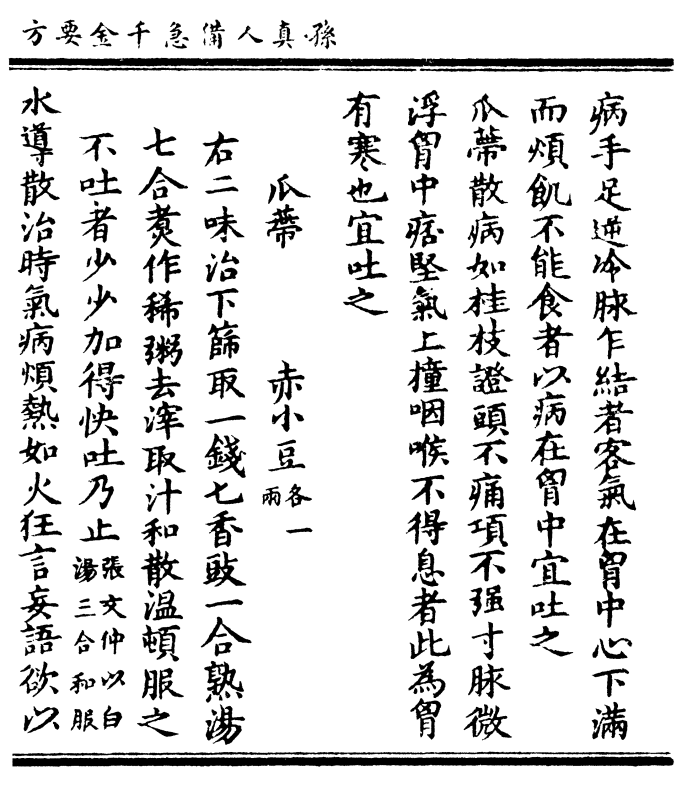 孫真人備急千金要方
病手足逆冷脉乍結者客氣在胷中心下滿
而煩飢不能食者以病在胷中宜吐之
瓜蔕散病如桂枝證頭不痛項不强寸脉微
浮胷中痞堅氣上撞咽喉不得息者此為胷
有寒也宜吐之
瓜蔕　赤小豆各一兩
右二味治下篩取一錢匕香豉一合熟湯
七合煑作稀粥去滓取汁和散温頓服之
不吐者少少加得快吐乃止張文仲以白湯三合和服
水導散治時氣病煩熱如火狂言妄語欲以